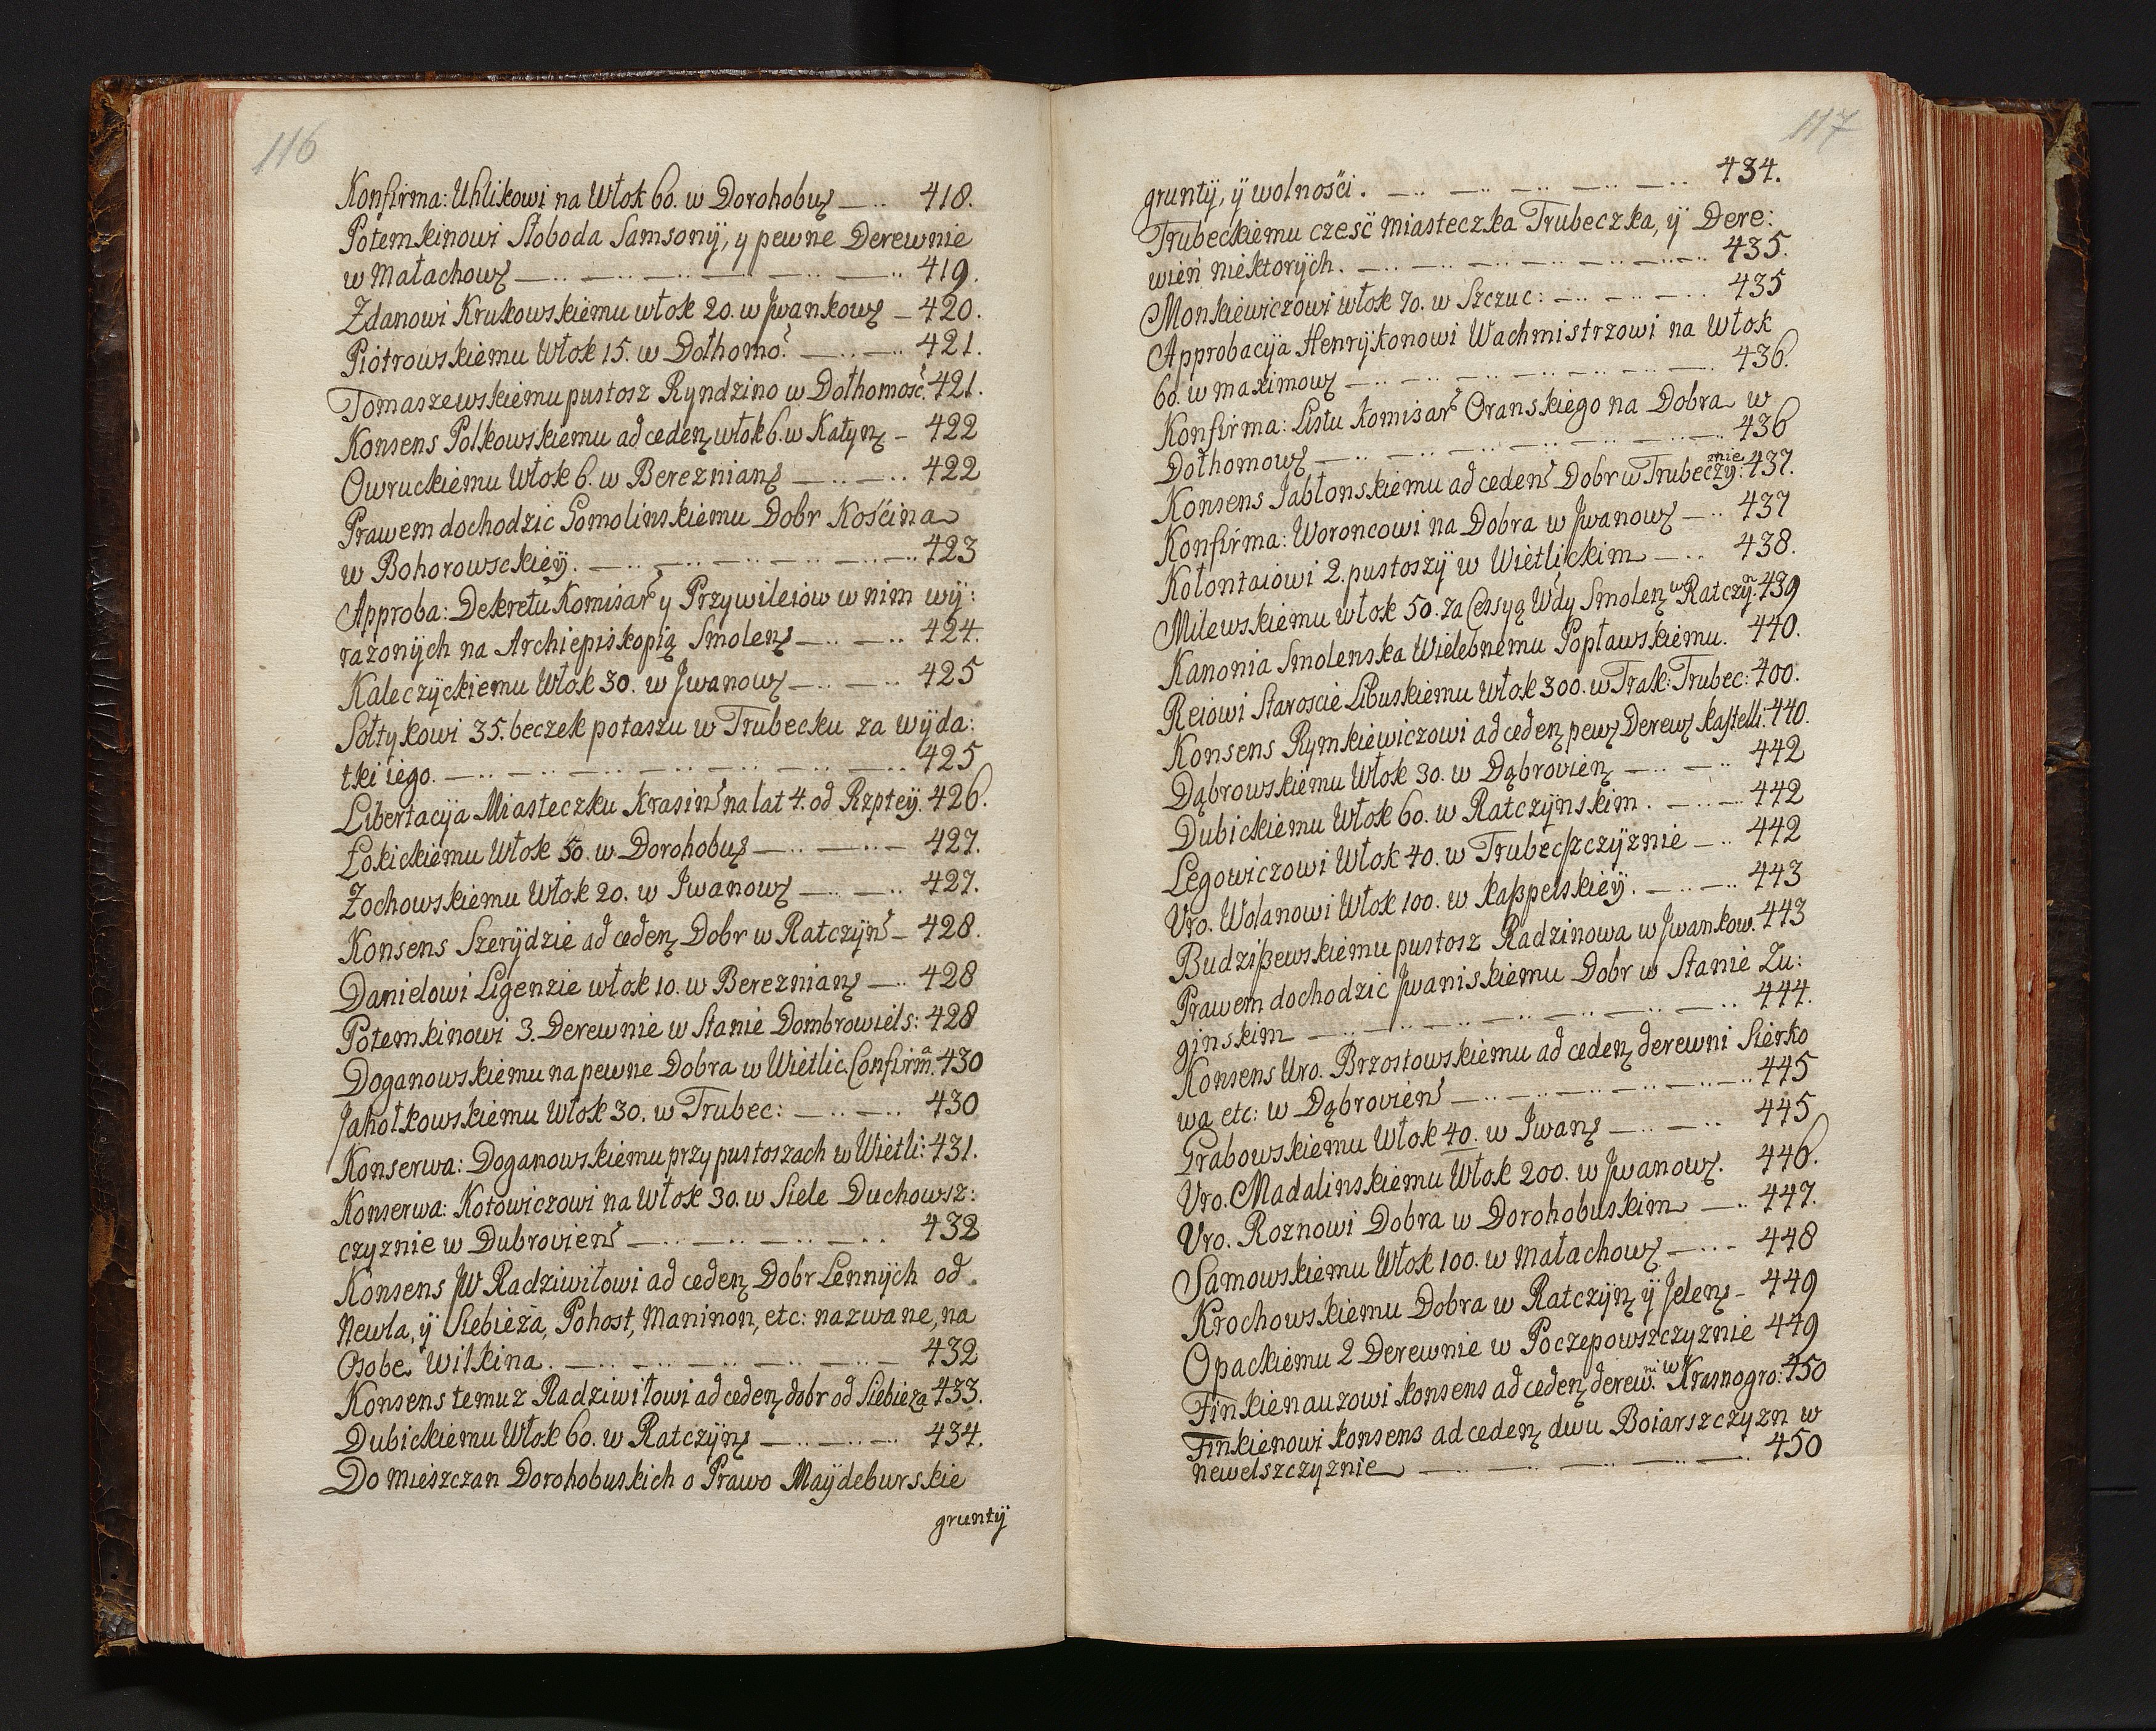 116
Konfirma: Uhlikowi na Włok 60. w Dorohobuz 418.
Potemkinowi Słoboda Samsony, y pewne Derewnie
w Małachowz 419.
Zdanowi Krukowskiemu włok 20. w Jwankowz 420.
Piotrowskiemu Włok 15. w Dołhomo: 421.
Tomaszewskiemu pustosz Ryndzino w Dołhomość. 421.
Konsens Polkowskiemu ad cedenz włok 6. w Katynz 422
Owruckiemu Włok 6. w Berezнianz 422
Prawem dochodzic Gomolinskiemu Dobr Kościna
w Bohorowsckiey. 423
Approba: Dekretu Komisar: y Przywileiow w nim wy:
razonych na Archiepiskopią Smolenz 424.
Kaleczyckiemu Włok 30. w Jwanowz 425
Sołtykowi 35. beczek potaszu w Trubecku za wyda:
tki iego. 425
Libertacya Miasteczku Krasin na lat 4. od Rzptey. 426.
Łokickiemu Włok 50. w Dorohobuz 427.
Zochowskiemu Włok 20. w Jwanowz 427.
Konsens Szerydzie ad cedenz Dobr w Ratczyn 428.
Danielowi Ligenzie włok 10. w Bereznianz 428
Potemkinowi 3. Derewnie w Stanie Dombrowiels: 428
Doganowskiemu na pewne Dobra w Wietlic. Confirma. 430
Jahołkowskiemu Włok 30. w Trubec: 430
Konserwa: Doganowskiemu przy pustoszach w Wietli: 431.
Konserwa: Kotowiczowi na Włok 30. w Siele Duchowsz:
czyznie w Dubrovien 432
Konsens JW Radziwiłowi ad cedenz Dobr Lennych od
Newla, y Siebieza, Pohost, Maninon, etc: nazwane, na
Osobe Wilkina. 432
Konsens temuz Radziwiłowi ad cedenz dobr od Siebieza 433.
Dubickiemu Włok 60. w Ratczynz 434.
Do mieszczan Dorohobuskich o Prawo Maydeburskie
grunty
117
grunty, y wolności. 434.
Trubeckiemu czesc miasteczka Trubeczka, y Dere:
wień niektorych. 435.
Monkiewiczowi włok 70. w Szczuc: 435
Approbacya Henrykonowi Wachmistrzowi na Włok
60. w maximowz 436.
Konfirma: Listu Komisar Oranskiego na Dobra w
Dołhomowz 436
Konsens Jabłonskiemu ad ceden Dobr w Trubeczy:znie 437.
Konfirma: Woroncowi na Dobra w Jwanowz 437
Kołontaiowi 2. pustoszy w Wietlickim 438.
Milewskiemu włok 50. za Cessyą Wdy Smolenz w Ratczyn. 439
Kanonia Smolenska Wielebnemu Popławskiemu. 440.
Reiowi Staroscie Libuskiemu Włok 300. w Trak: Trubec: 400.
Konsens Rymkiewiczowi ad cedenz pewz Derewz Kastelli: 440.
Dąbrowskiemu Włok 30. w Dąbrovienz 442
Dubickiemu Włok 60. w Ratczynskim. 442
Legowiczowi Włok 40. w Trubecszczyznie 442
Uro. Wolanowi Włok 100. w Kaßpelskiey. 443
Budzißewskiemu pustosz Radzinowa w Jwankow. 443
Prawem dochodzic Jwaniskiemu Dobr w Stanie Zu:
ginskim 444.
Konsens Uro. Brzostowskiemu ad cedenz derewni Sierko
wa etc: w Dąbrovien 445
Grabowskiemu Włok 40. w Jwanz 445
Uro. Madalinskiemu Włok 200. w Jwanowz. 446.
Uro. Roznowi Dobra w Dorohobuskim 447.
Samowskiemu Włok 100. w Małachowz 448
Krochowskiemu Dobra w Ratczynz y Jelenz 449
Opackiemu 2 Derewnie w Poczepowszczyznie 449
Finkienauzowi konsens ad cedenz derew:ni w Krasnogro: 450
Finkienowi konsens ad cedenz dwu Boiarszczyzn w
newelszczyznie 450